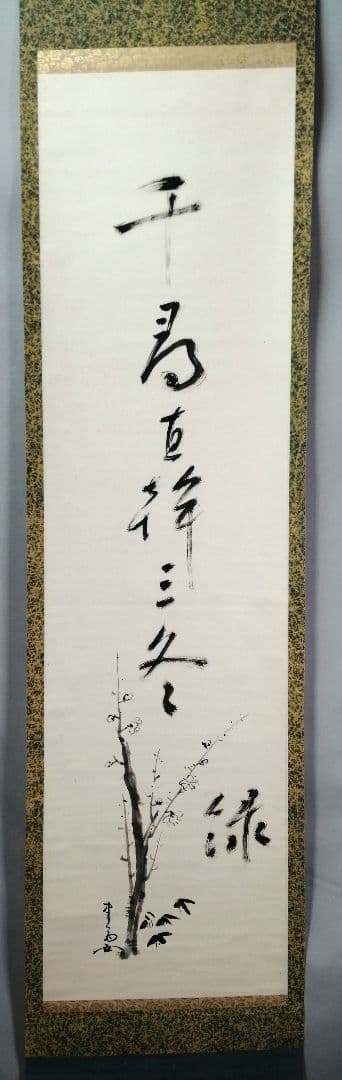 千尋直幹三冬
緑